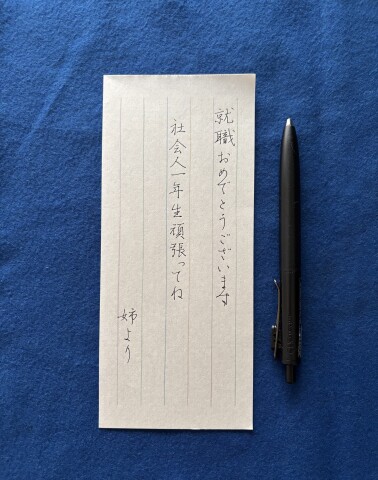 就職おめでとうございます
社会人一年生頑張ってね
姉より